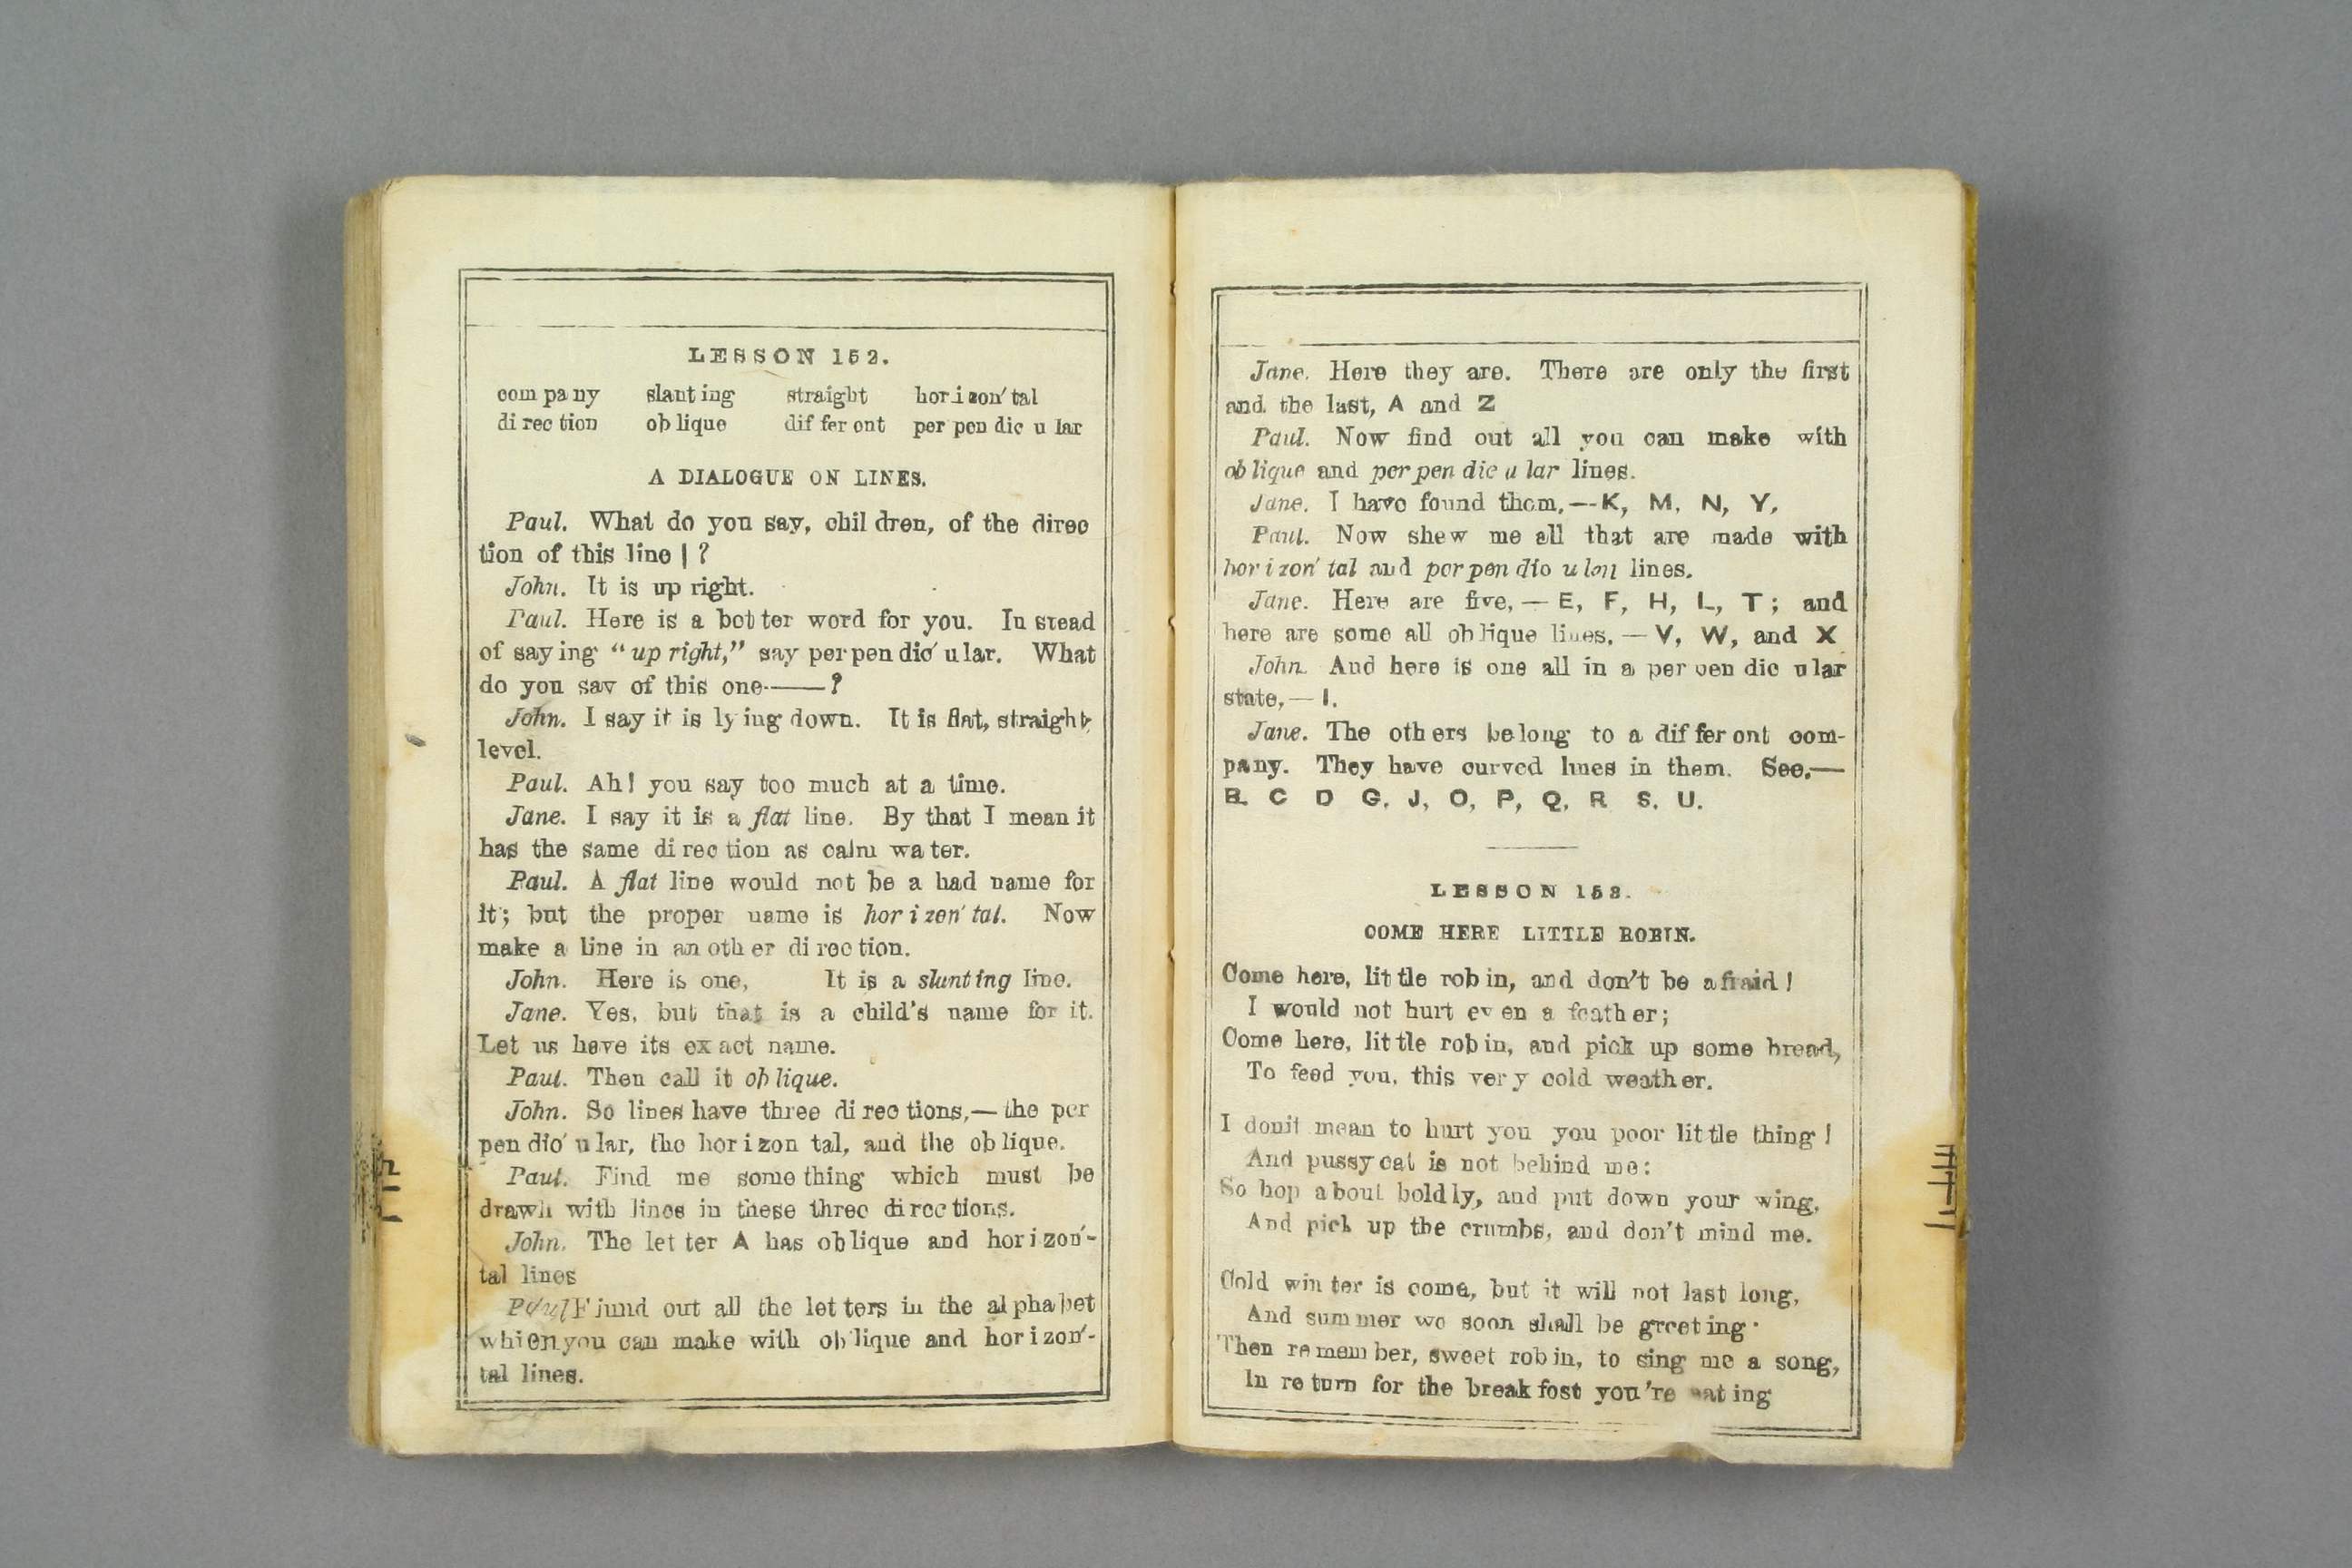 LESSON 152.
com pa ny slant ing straight hor i zon′ tal
di rec tion ob lique dif fer ont per pen dic u lar
A DIALOGUE ON LINES.
Paul. What do you say, chil dren, of the direc
tion of this line | ?
John. It is up right.
Paul. Here is a bot ter word for you. In stead
of say ing "up right," say per pen dic′ u lar. What
do you say of this one —— ?
John. I say it is ly ing down. It is flat, straight,
level.
Paul. Ah! you say too much at a time.
Jane. I say it is a flat line. By that I mean it
has the same di rec tion as calm wa ter.
Paul. A flat line would not be a bad name for
it; but the proper name is hor i zen′ tal. Now
make a line in an oth er di rec tion.
John. Here is one, It is a slunt ing line.
Jane. Yes, but that is a child's name for it.
Let us have its ex act name.
Paul. Then call it ob lique.
John. So lines have three di rec tions,— the per
pen dic′ u lar, the hor i zon tal, and the ob lique.
Paul. Find me some thing which must be
drawn with lines in these three di rec tions.
John. The let ter A has oblique and hor i zon′-
tal lines
Paul F jund out all the let ters in the al pha bet
whien you can make with ob lique and hor i zon′-
tal lines.
Jane. Here they are. There are only the first
and the last, A and Z
Paul. Now find out all you can make with
ob lique and per pen dic u lar lines.
Jane. I have found them,—K, M, N, Y,
Paul. Now shew me all that are made with
hor i zon′ tal and per pen dic u lou lines.
Jane. Here are five,— E, F, H, L, T; and
here are some all ob lique lines,— V, W, and X
John. And here is one all in a per pen dic u lar
state,— I.
Jane. The oth ers belong to a dif fer ont com-
pany. They have curved lines in them. See,—
B. C D G, J, O, P, Q, R S. U.
LESSON 153.
COME HERE LITTLE ROBIN.
Come here, lit tle rob in, and don't be a fraid!
I would not hurt ev en a feath er;
Come here, lit tle rob in, and pick up some bread,
To feed you, this ver y cold weath er.
I donit mean to hurt you you poor lit tle thing!
And pussy cat is not behind me:
So hop a bout bold ly, and put down your wing,
And pick up the crumbs, and don't mind me.
Cold win ter is come, but it will not last long,
And sum mer we soon shall be greet ing·
Then re mem ber, sweet rob in, to sing me a song,
In re turn for the break fost you're eat ing